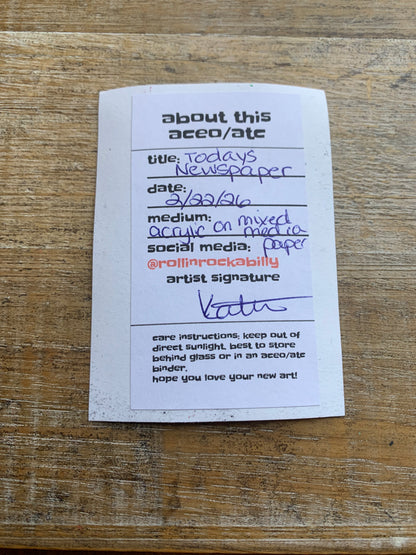 about this
aceo/atc
title: Todays
Newspaper
date:
2/22/26
medium:
acrylic on mixed media
social media: paper
@rollinrockabilly
artist signature
care instructions: keep out of
direct sunlight. best to store
behind glass or in an aceo/atc
binder.
hope you love your new art!